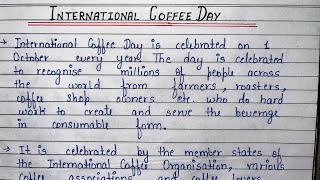 INTERNATIONAL COFFEE DAY
→ International Coffee Day is celebrated on 1
October every year. The day is celebrated
to recognise millions of people across
the world from farmers, roasters,
coffee shop owners etc. who do hard
work to create and serve the beverage
in consumable form.
→ It is celebrated by the member states of
the International Coffee Organisation, various
coffee associations and coffee lovers